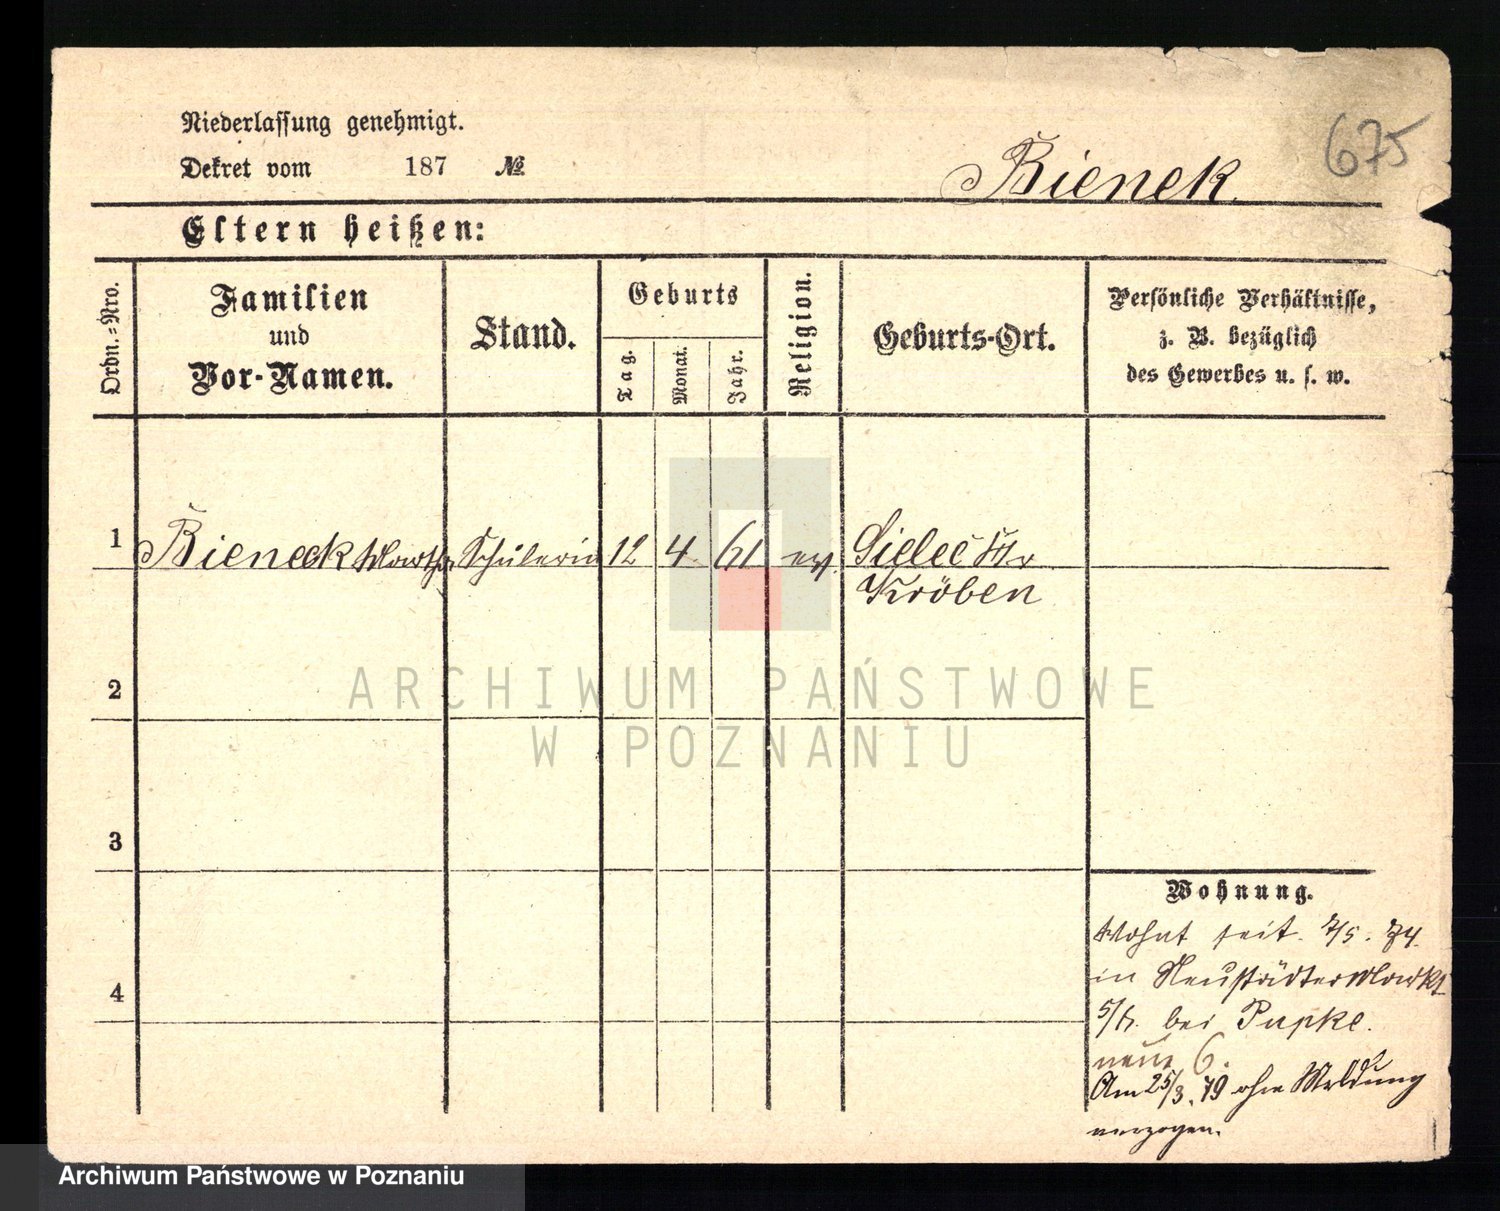 675
Niederlassung genehmigt.
Dekret vom 187 №
Bienek.
Eltern heißen:
Ordn.-Nro.
Familien
und
Vor-Namen.
Stand.
Geburts
Tag.
Monat.
Jahr.
Religion.
Geburts-Ort.
Persönliche Verhältnisse,
z. B. bezüglich
des Gewerbes u. s. w.
1 Bieneck Martha Schülerin 12 4. 61 ev. Sielec Kr
Kröben
2
3
4
Wohnung.
Wohnt seit. 7/5. 74.
in Neustädter Markt
5/6. bei Papke.
neue 6.
Am 25/3. 79 ohne Meldung
verzogen.
ARCHIWUM PAŃSTWOWE
W POZNANIU
Archiwum Państwowe w Poznaniu